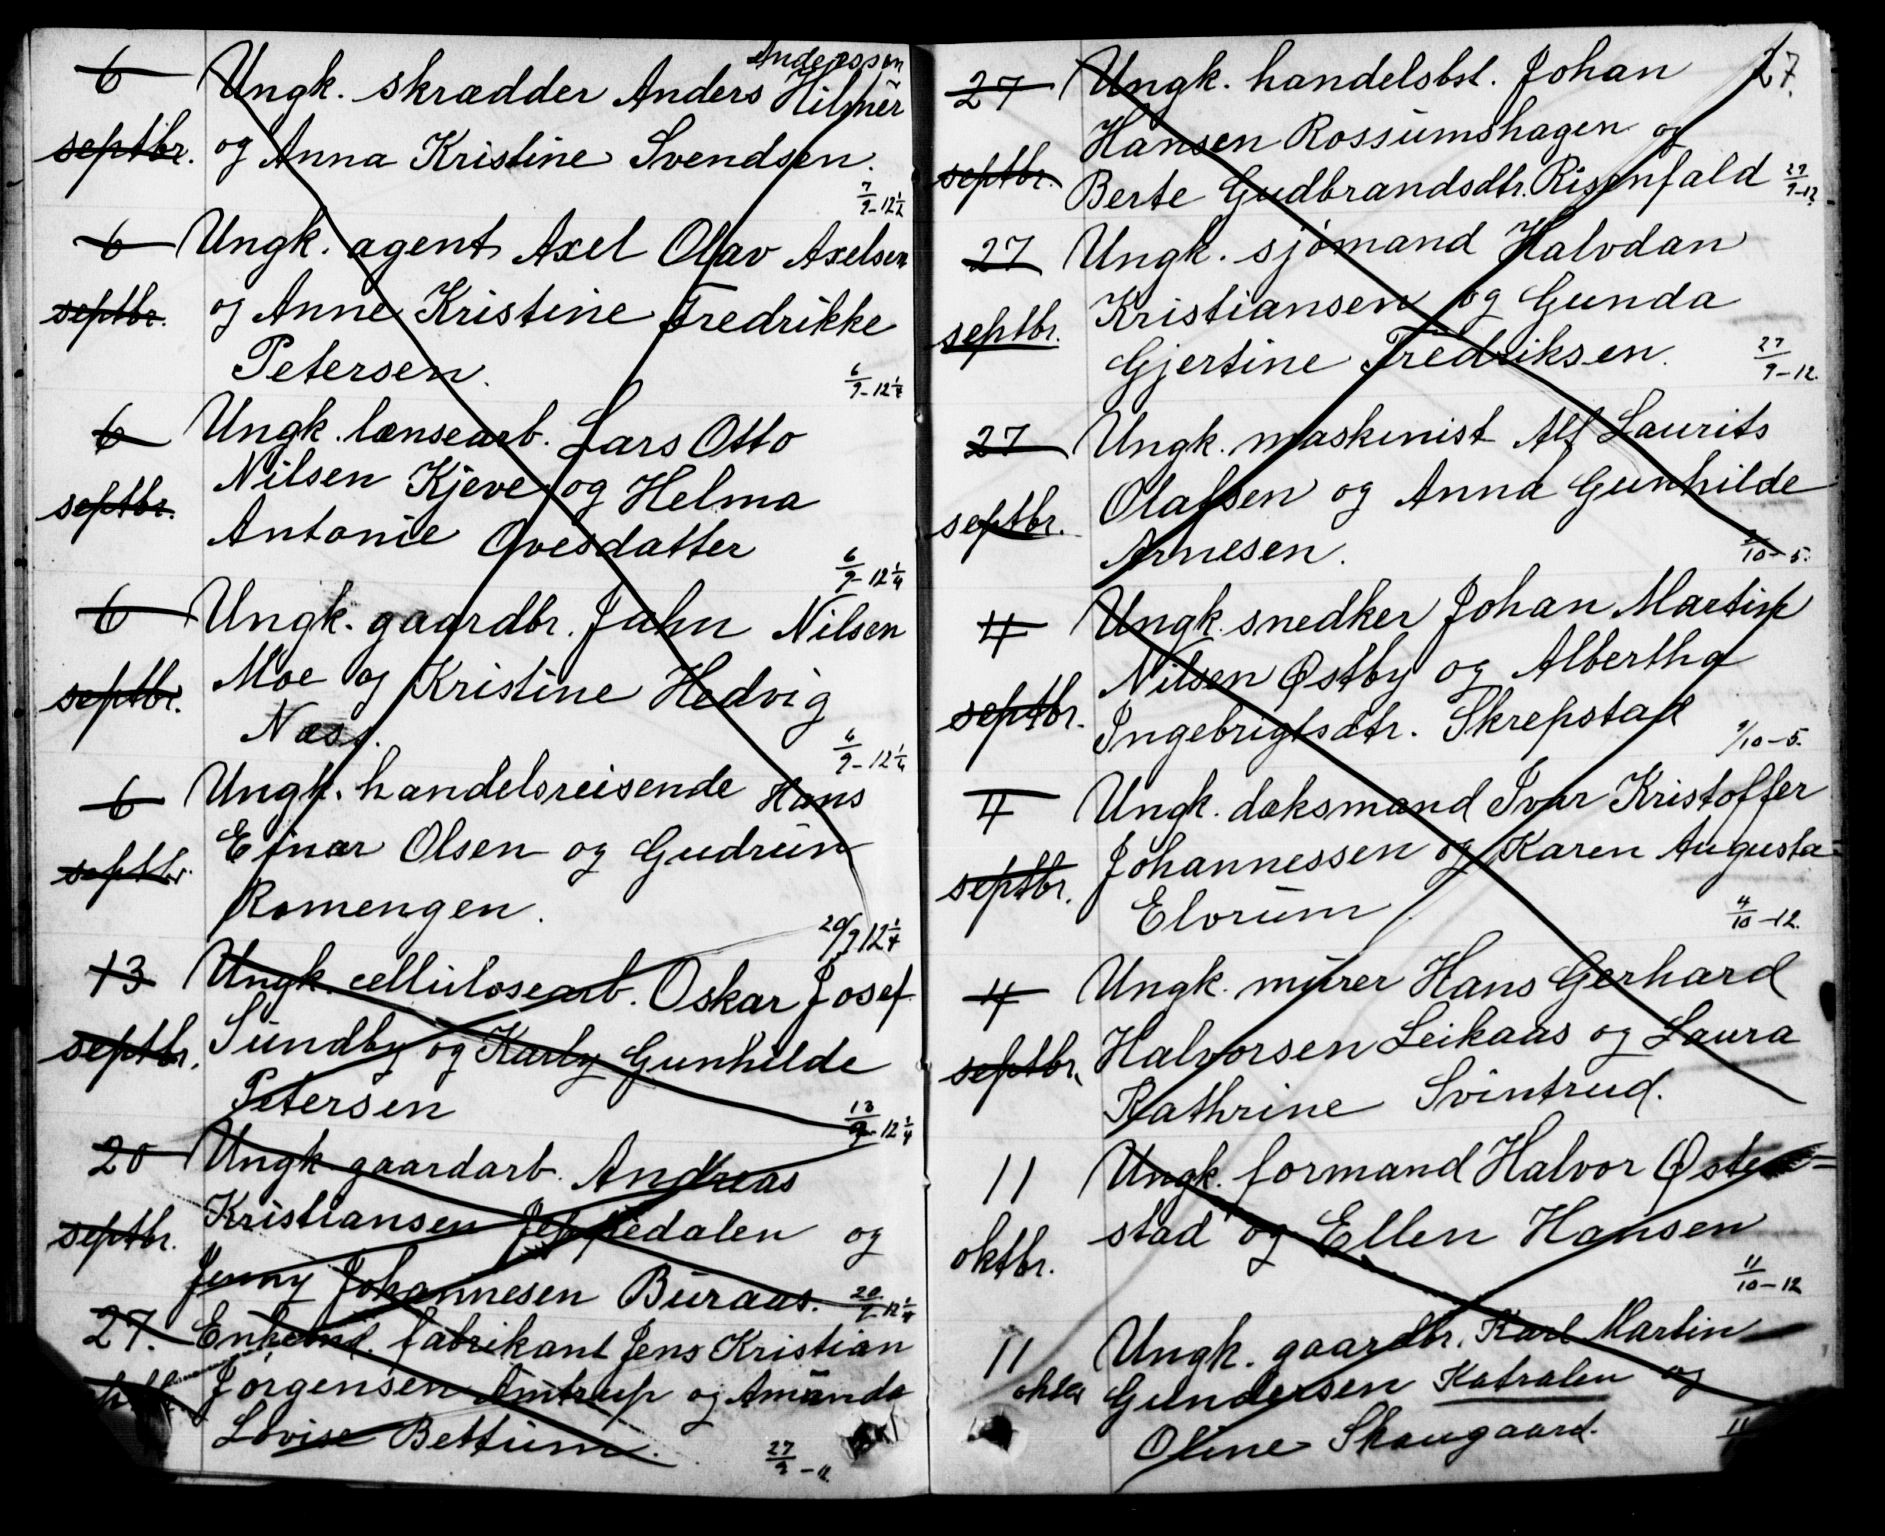 6 Ungk. skrædder Anders Anderssen Hilmer
septbr. og Anna Kristine Svendsen.
7/9-12½
6 Ungk. agent Axel Olav Axelsen
septbr. og Anne Kristine Fredrikke
Petersen. 6/9-12¼
6 Ungk. lænsearb. Lars Otto
Nilsen Kjeve og Helma
septbr. Antonie Ovesdatter
6/9-12¼
6 Ungk. gaardbr. Jahn Nilsen
septbr. Moe og Kristine Hedvig
Næss. 6/9-12¼
6 Ungk. handelsreisende Hans
septbr. Einar Olsen og Gudrun
Romengen. 20/9 12¼
13 Ungk. cellulosearb. Oskar Josef
septbr. Sundby og Karly Gunhilde
Petersen 13/9-12¼
20 Ungk. gaardarb. Andreas
septbr. Kristiansen Jeppedalen og
Jenny Johannesen Buraas. 20/9-12¼
27. Enkemd. fabrikant Jens Kristian
Jørgensen Amtrup og Amanda
Lovise Bettum. 27/9-12
27.
27 Ungk. handelsbst. Johan
Hansen Rossumshagen og
septbr. Berte Gudbrandsdtr. Risenfald 27/9-12
27 Ungk. sjømand Halvdan
septbr. Kristiansen og Gunda
Gjertine Fredriksen. 27/9-12.
27 Ungk. maskinist Alf Laurits
septbr. Olafsen og Anna Gunhilde
Arnesen. /10-5.
4 Ungk. snedker Johan Martin
Nilsen Østby og Albertha
septbr. Ingebrigtsdtr. Skrepstad /10-5.
4 Ungk. dæksmand Ivar Kristoffer
septbr. Johannessen og Karen Augusta
Elvrum 4/10-12.
4 Ungk. murer Hans Gerhard
septbr. Halvorsen Leikaas og Laura
Kathrine Svintrud.
11 Ungk. formand Halvor Østen=
oktbr. stad og Ellen Hansen
11/10-12
11 Ungk. gaardbr. Karl Martin
oktbr Gundersen Katralen og
Oline Skaugaard. 11